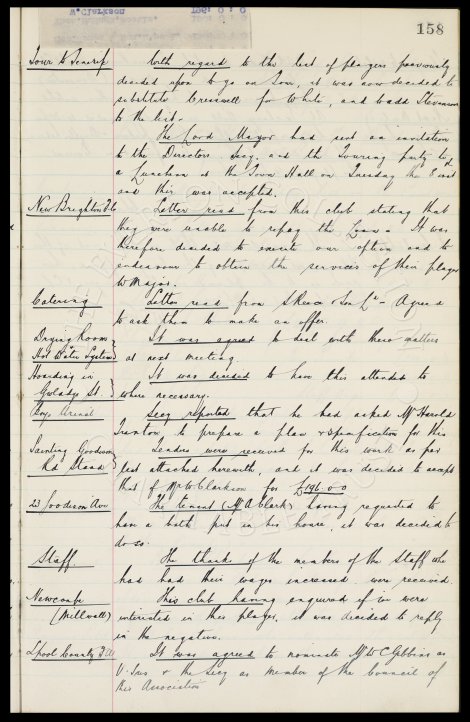 W. Clarkson
158
Tour to Tenerife With regard to the list of players previously
decided upon to go on Tour, it was now decided to
substitute Cresswell for White, and to add Stevenson
to the list.
The Lord Mayor had sent an invitation
to the Directors, Secy. and the Touring party to
a Luncheon at the Town Hall on Tuesday the
and this was accepted.
New Brighton F.C. Letter read from this club stating that
they were unable to repay the Loan. It was
therefore decided to execute our option and to
endeavour to obtain the services of their player
Catering Letter read from & Son Ld - Agreed
to ask them to make an offer.
Drying Room
Hot Water System It was agreed to deal with these matters
at next meeting
Hoarding in
Gwladys St. It was decided to have this attended to
where necessary.
Boys Urinal Secy reported that he had asked Mr Harold
to prepare a plan & specification for this
Painting Goodison
Rd Stand Tenders were received for this work as per
list attached herewith, and it was decided to accept
that of Mr W Clarkson for £196.0.0
23 Goodison Ave The tenant (Mr A Clark) having requested to
have a bath put in his house, it was decided to
do so.
Staff. The thanks of the members of the Staff who
had had their wages increased were received.
Newcomb
(Millwall) This club having enquired if we were
interested in this player, it was decided to reply
in the negative.
L'pool County F.A. It was agreed to nominate Mr W C Gibbins as
V. Pres & the Secy as member of the Council of
this Association